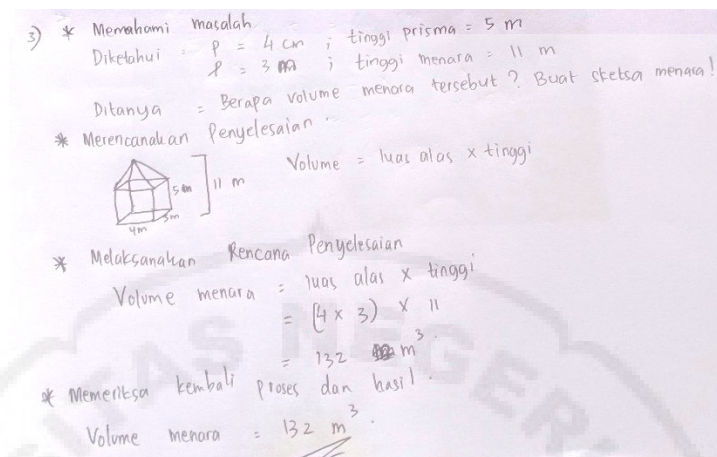 3) * Memahami masalah
Diketahui : p = 4 cm ; tinggi prisma = 5 m
l = 3 m ; tinggi menara = 11 m
Ditanya = Berapa volume menara tersebut ? Buat sketsa menara!
* Merencanakan Penyelesaian.
Volume = luas alas x tinggi
5 m
11 m
3m
4m
* Melaksanakan Rencana Penyelesaian
Volume menara = luas alas x tinggi
= (4 x 3) x 11
= 132 m³.
* Memeriksa kembali proses dan hasil.
Volume menara = 132 m³.
ITAS NEGER